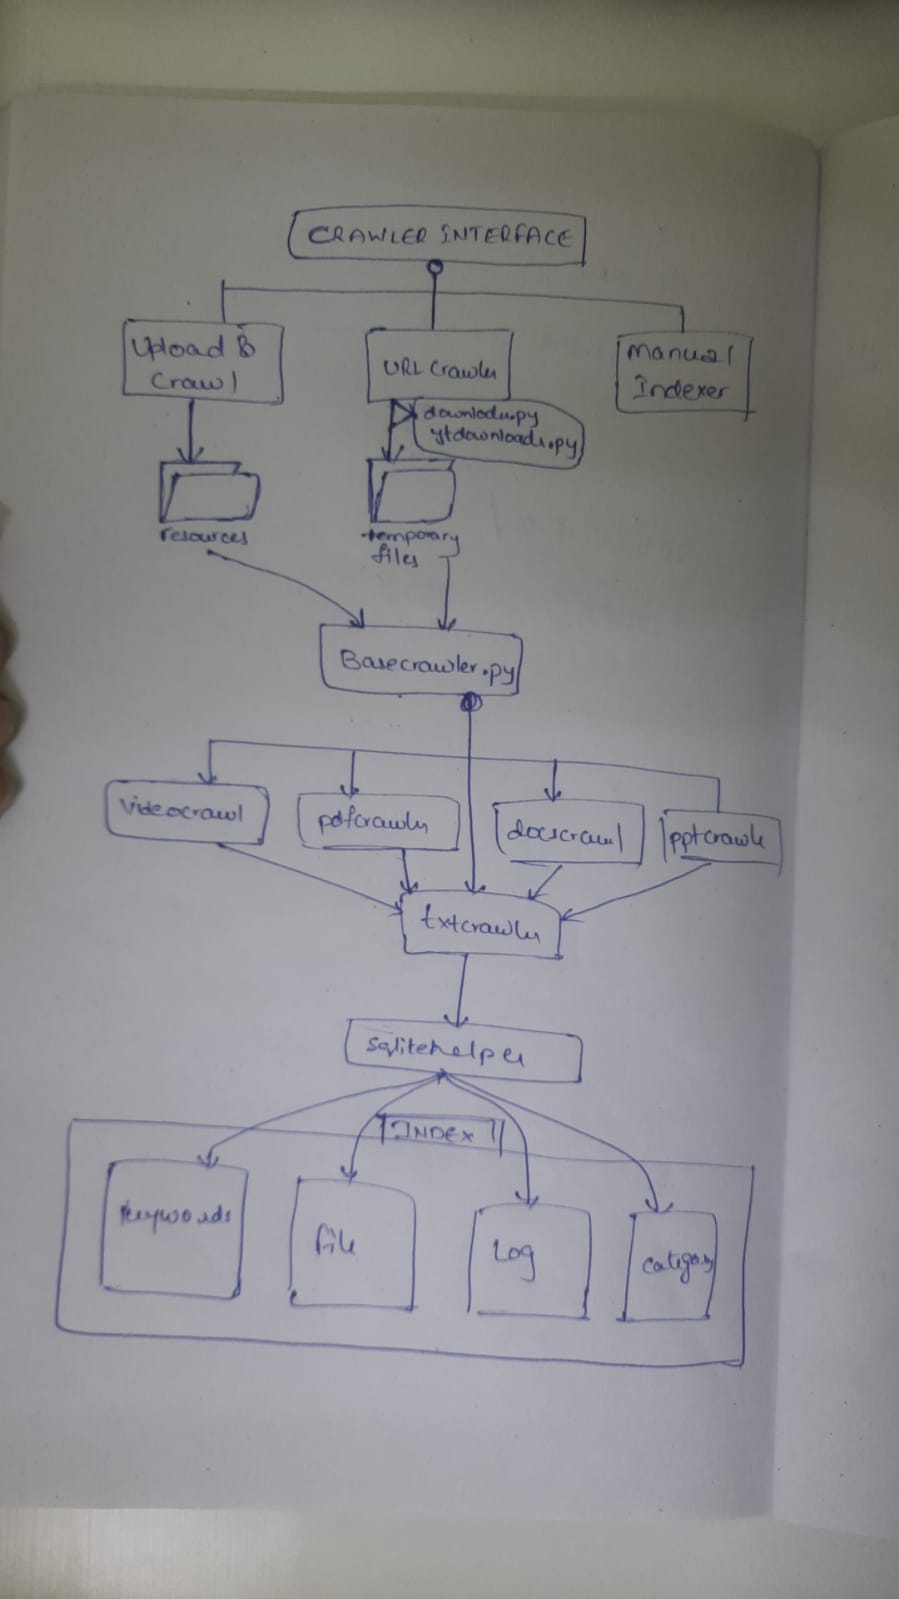 CRAWLER INTERFACE
Upload &
Crawl
URL Crawler
Manual
Indexer
downloder.py
ytdownloader.py
resources
temporary
files
Basecrawler.py
videocrawl
pdfcrawler
docscrawl
pptcrawle
txtcrawler
sqlitehelper
INDEX
keywords
file
Log
category